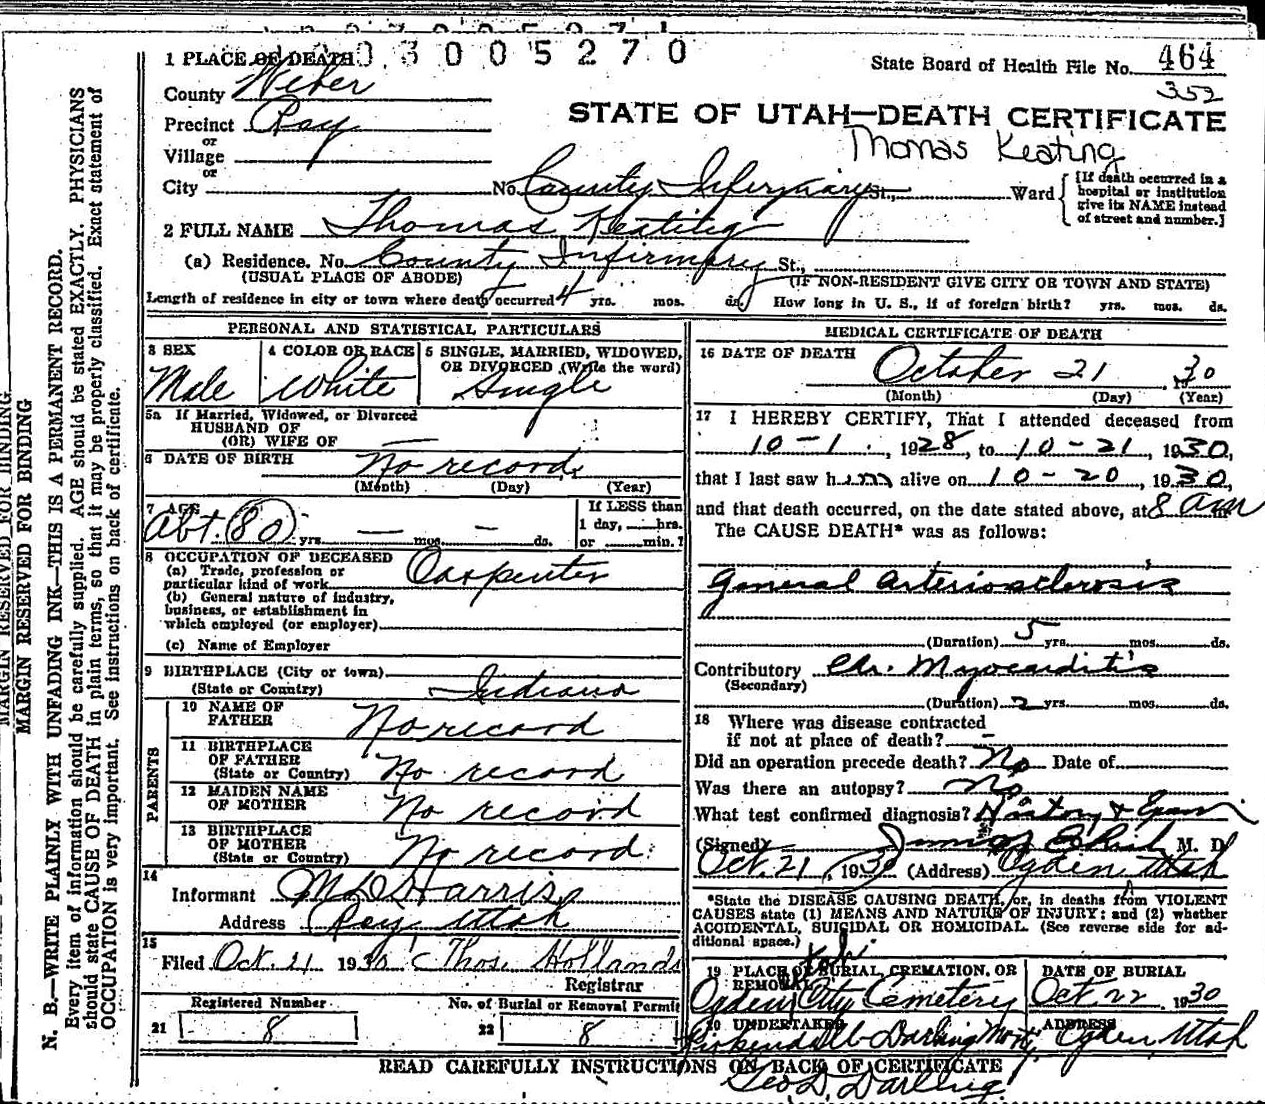 003005270
1 PLACE OF DEATH
State Board of Health File No. 464
352
County Weber
STATE OF UTAH—DEATH CERTIFICATE
Precinct Roy
Thomas Keating
or
Village
or
City No. County Infirmary St., Ward
[If death occurred in a hospital or institution give its NAME instead of street and number.]
2 FULL NAME Thomas Keating
(a) Residence. No. County Infirmary St.,
(USUAL PLACE OF ABODE) (IF NON-RESIDENT GIVE CITY OR TOWN AND STATE)
Length of residence in city or town where death occurred 4 yrs. mos. ds. How long in U. S., if of foreign birth? yrs. mos. ds.
PERSONAL AND STATISTICAL PARTICULARS
3 SEX Male
4 COLOR OR RACE White
5 SINGLE, MARRIED, WIDOWED, OR DIVORCED (Write the word) Single
5a If Married, Widowed, or Divorced
HUSBAND OF
(OR) WIFE OF —
6 DATE OF BIRTH No record
(Month) (Day) (Year)
7 AGE Abt. 80 yrs. — mos. — ds.
If LESS than
1 day, hrs.
or min.?
8 OCCUPATION OF DECEASED
(a) Trade, profession or
particular kind of work Carpenter
(b) General nature of industry,
business, or establishment in
which employed (or employer)
(c) Name of Employer
9 BIRTHPLACE (City or town)
(State or Country) Indiana
PARENTS
10 NAME OF
FATHER No record
11 BIRTHPLACE
OF FATHER
(State or Country) No record
12 MAIDEN NAME
OF MOTHER No record
13 BIRTHPLACE
OF MOTHER
(State or Country) No record
14
Informant M D Harris
Address Roy, Utah
15
Filed Oct. 21 1930 Thos. Hollands
Registrar
Registered Number
21 8
No. of Burial or Removal Permit
22 8
MEDICAL CERTIFICATE OF DEATH
16 DATE OF DEATH October 21, 1930
(Month) (Day) (Year)
17 I HEREBY CERTIFY, That I attended deceased from
10-1, 1928, to 10-21, 1930,
that I last saw him alive on 10-20, 1930,
and that death occurred, on the date stated above, at 8 am
The CAUSE DEATH* was as follows:
General arteriosclerosis
(Duration) 5 yrs. mos. ds.
Contributory Chr. Myocarditis
(Secondary)
(Duration) 2 yrs. mos. ds.
18 Where was disease contracted
if not at place of death? —
Did an operation precede death? No Date of
Was there an autopsy? No
What test confirmed diagnosis? History & Exam
(Signed) M. D.
Oct. 21, 1930 (Address) Ogden, Utah
*State the DISEASE CAUSING DEATH, or, in deaths from VIOLENT
CAUSES state (1) MEANS AND NATURE OF INJURY: and (2) whether
ACCIDENTAL, SUICIDAL OR HOMICIDAL. (See reverse side for ad-
ditional space.)
19 PLACE OF BURIAL, CREMATION, OR
REMOVAL Utah
Ogden City Cemetery
DATE OF BURIAL
Oct. 22 1930
20 UNDERTAKER
Kirkendall-Darling Morty.
ADDRESS
Ogden, Utah
READ CAREFULLY INSTRUCTIONS ON BACK OF CERTIFICATE
Geo D. Darling
MARGIN RESERVED FOR BINDING
MARGIN RESERVED FOR BINDING
N. B.—WRITE PLAINLY WITH UNFADING INK—THIS IS A PERMANENT RECORD.
Every item of information should be carefully supplied. AGE should be stated EXACTLY. PHYSICIANS
should state CAUSE OF DEATH in plain terms, so that it may be properly classified. Exact statement of
OCCUPATION is very important. See instructions on back of certificate.